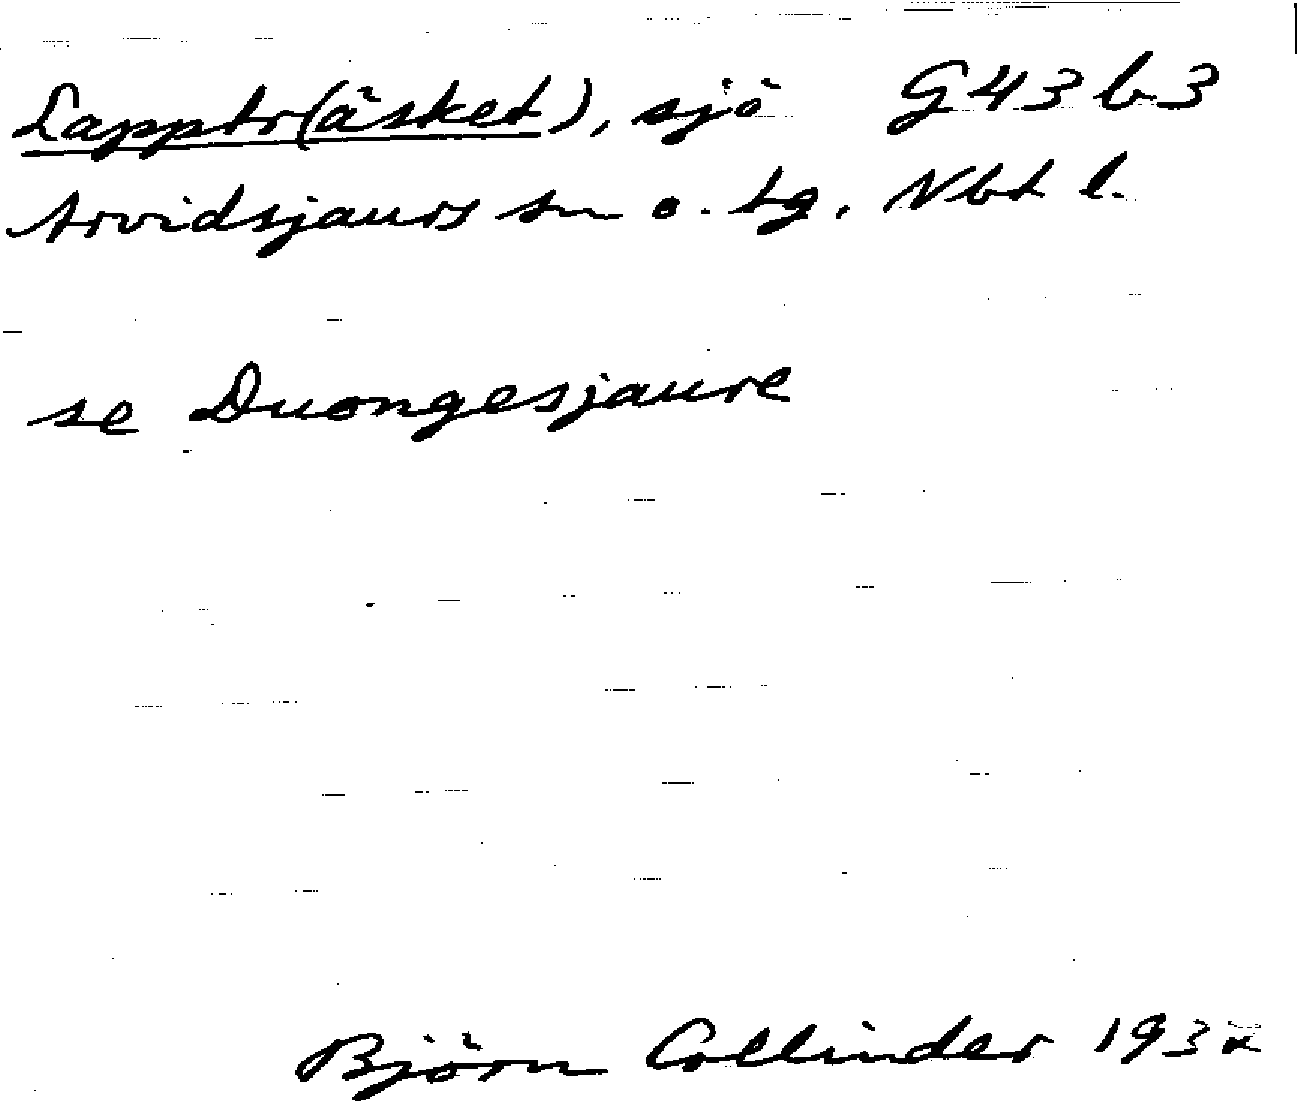 Lapptr(äsket), sjö G43b3
Arvidsjaurs sn o. tg. Nbt l.
se Duongesjaure
Björn Collinder